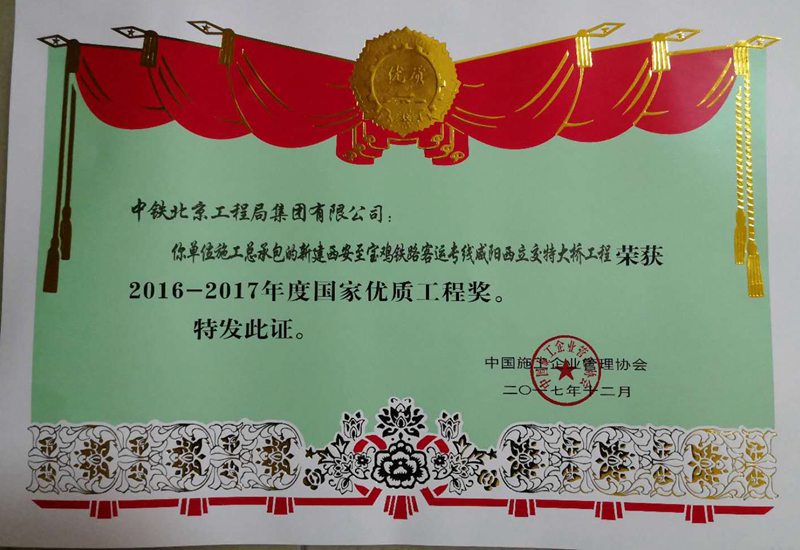 优质
中铁北京工程局集团有限公司：
你单位施工总承包的新建西安至宝鸡铁路客运专线咸阳西立交特大桥工程 荣获
2016-2017年度国家优质工程奖。
特发此证。
中国施工企业管理协会
中国施工企业管理协会
二〇一七年十二月